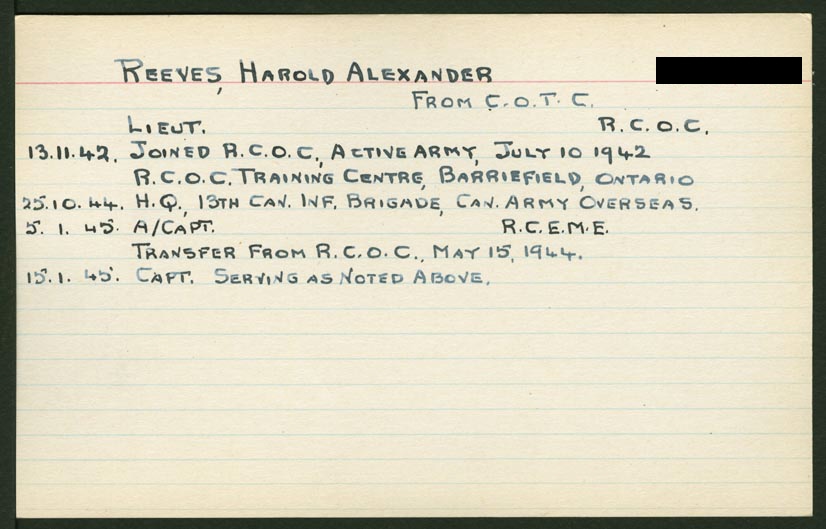 REEVES, HAROLD ALEXANDER
FROM C.O.T.C.
LIEUT. R.C.O.C.
13.11.42. JOINED R.C.O.C., ACTIVE ARMY, JULY 10 1942
R.C.O.C. TRAINING CENTRE, BARRIEFIELD, ONTARIO
25.10.44. H.Q., 13TH CAN. INF. BRIGADE, CAN. ARMY OVERSEAS.
5.1.45. A/CAPT. R.C.E.M.E.
TRANSFER FROM R.C.O.C., MAY 15, 1944.
15.1.45. CAPT. SERVING AS NOTED ABOVE.